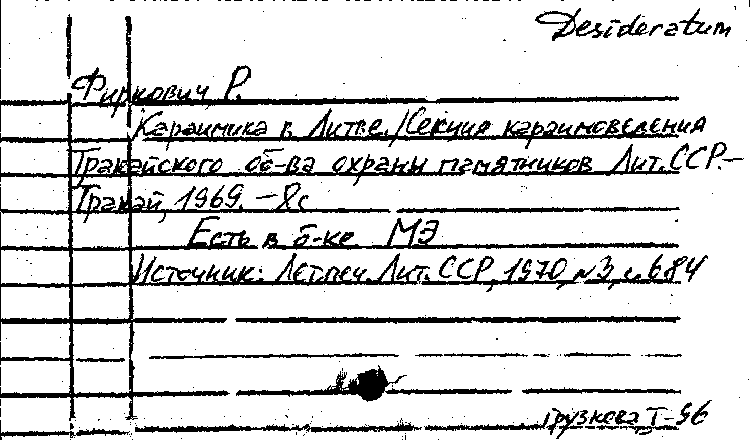 Desideratum
Фиркович, Р.
Караимика в Литве. /Секция караимоведения
Тракайского об-ва охраны памятников Лит.ССР.–
Тракай, 1969. – 8с
Есть в б-ке МЭ
Источник: Летпеч. Лит. ССР, 1970, №3, с. 684
Грузнова Т-96